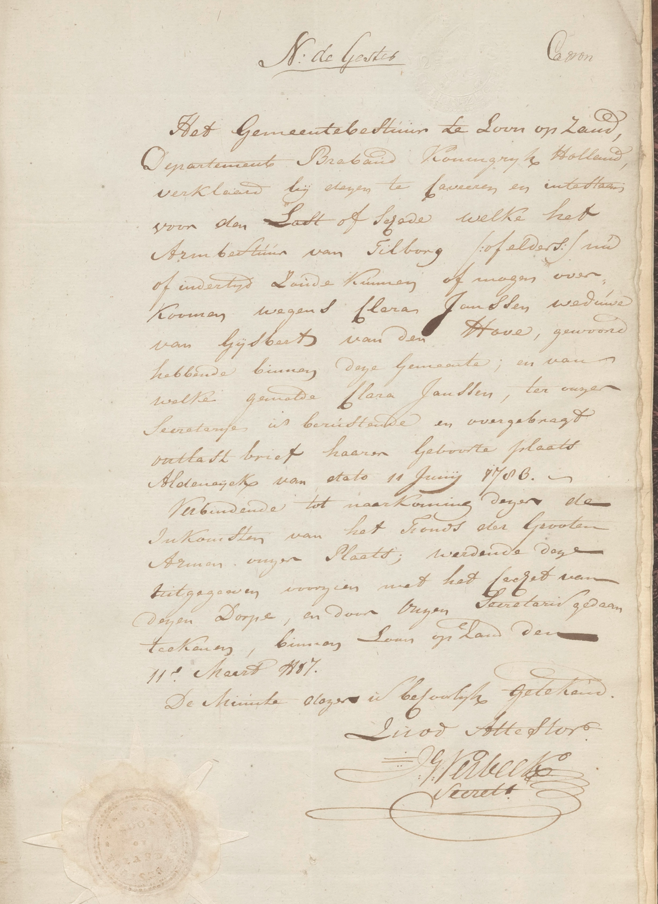 N: de Goster
Caron
Het Gemeentebestuur te Loon op Zand,
Departement Braband Koningryk Holland,
verklaard by dezen te Caveeren en instestaan
voor den Last of Schade welke het
Armbestuur van Tilborg /:of elders:/ nu
of indertyd Zoude kunnen of mogen over-
koomen wegens Clara Janssen weduwe
van Gysbert van den Hove, gewoond
hebbende binnen deze Gemeente; en van
welke gemelde Clara Janssen, ter onzer
Secretarye is berustende en overgebragt
ontlast brief haarer Geboorte plaats
Aldeneyck van dato 11 Juny 1783.
Verbindende tot naarkoming dezer de
Inkomsten van het Fonds der Grooten
Armen onzer Plaats; werdende deze
uitgegeeven voorzien met het Cachet van
dezen Dorpe, en door Onzen Secretaris gedaan
teekenen, binnen Loon op Zand den
11e Maart 1807.
De Minute dezer is behoorlyk getekend.
Quod Attestor
JVerbeek
Secrets.
LOON
OP
ZAND